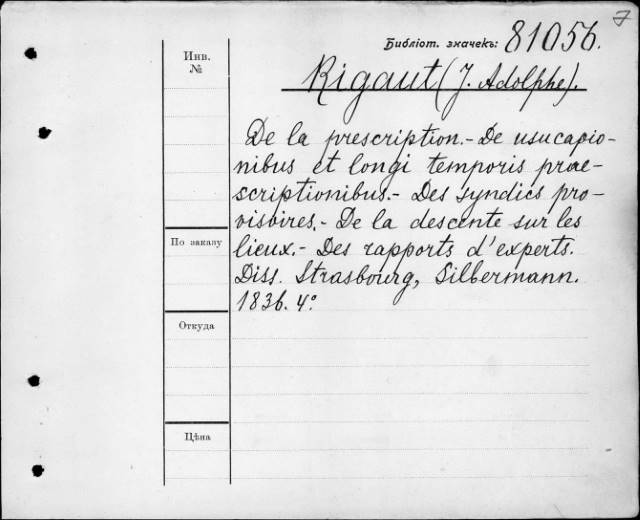 7
Библіот. значекъ: 81056.
Инв.
№
Rigaut (J. Adolphe).
De la prescription.- De usucapio-
nibus et longi temporis prae-
scriptionibus.- Des syndics pro-
visoires.- De la descente sur les
lieux.- Des rapports d'experts.
Diss. Strasbourg, Silbermann.
1836. 4°
По заказу
Откуда
Цѣна